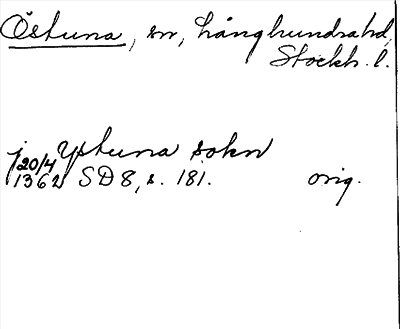 Östuna, sn, Långhundrahd,
Stockh. l.
j Ystuna sokn
20/4
1362 SD 8, s. 181. orig.